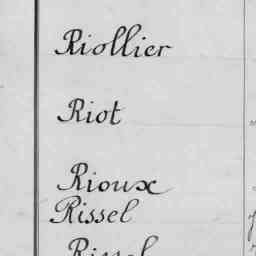 Riollier
Riot
Rioux
Rissel
Rissel